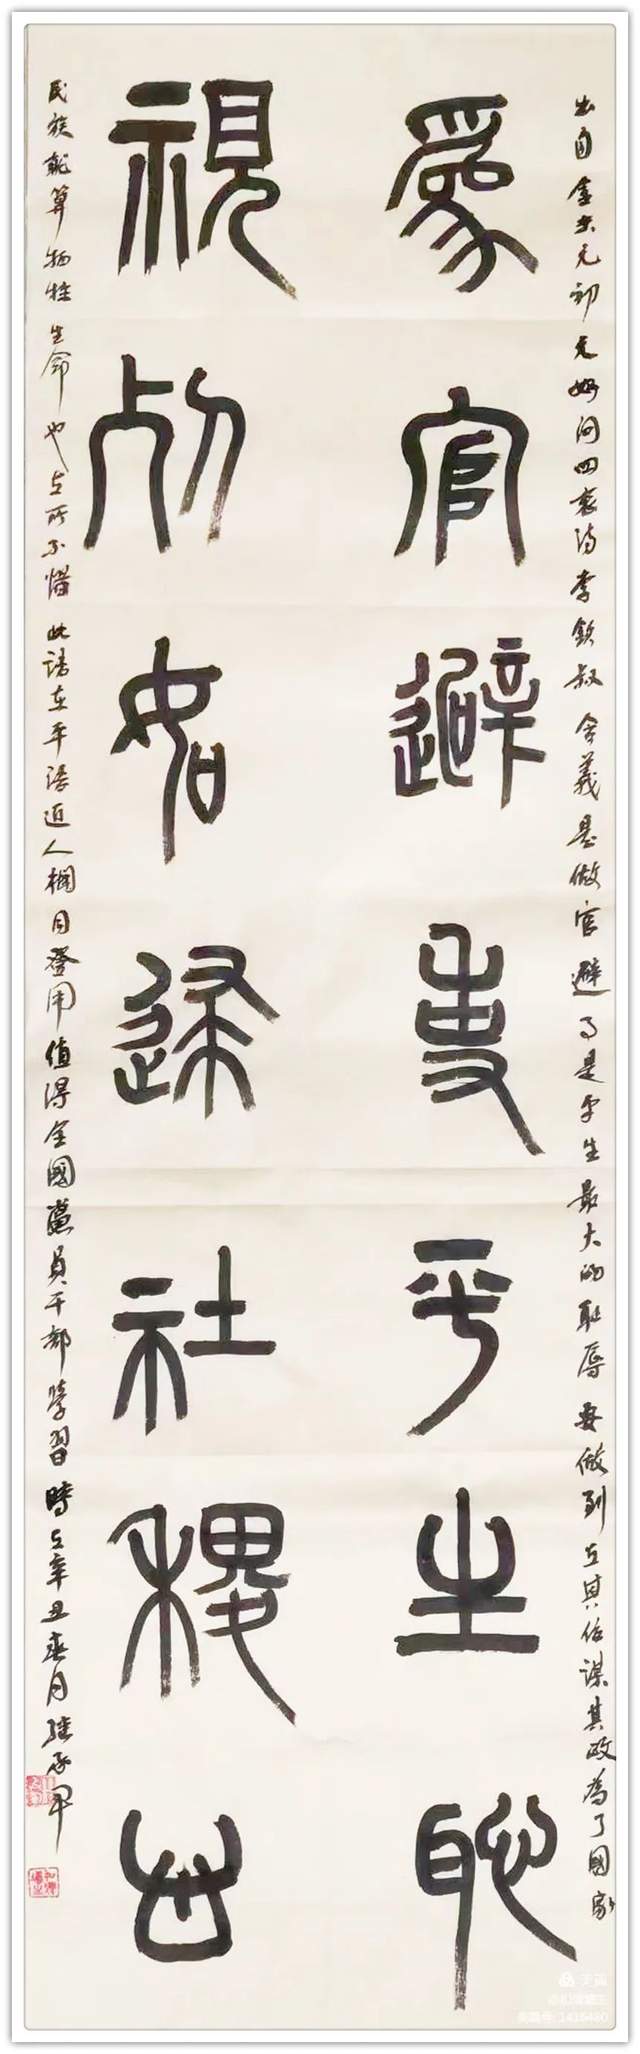 出自金末元初元好问四哀诗李钦叔 含義是做官避事是平生最大的耻辱 要做到在其位謀其政為了國家
爲官避事平生恥
視死如歸社稷心
民族就算牺牲生命也在所不惜 此語在平语近人欄目登用值得全國黨員干部學習 時在辛丑春月